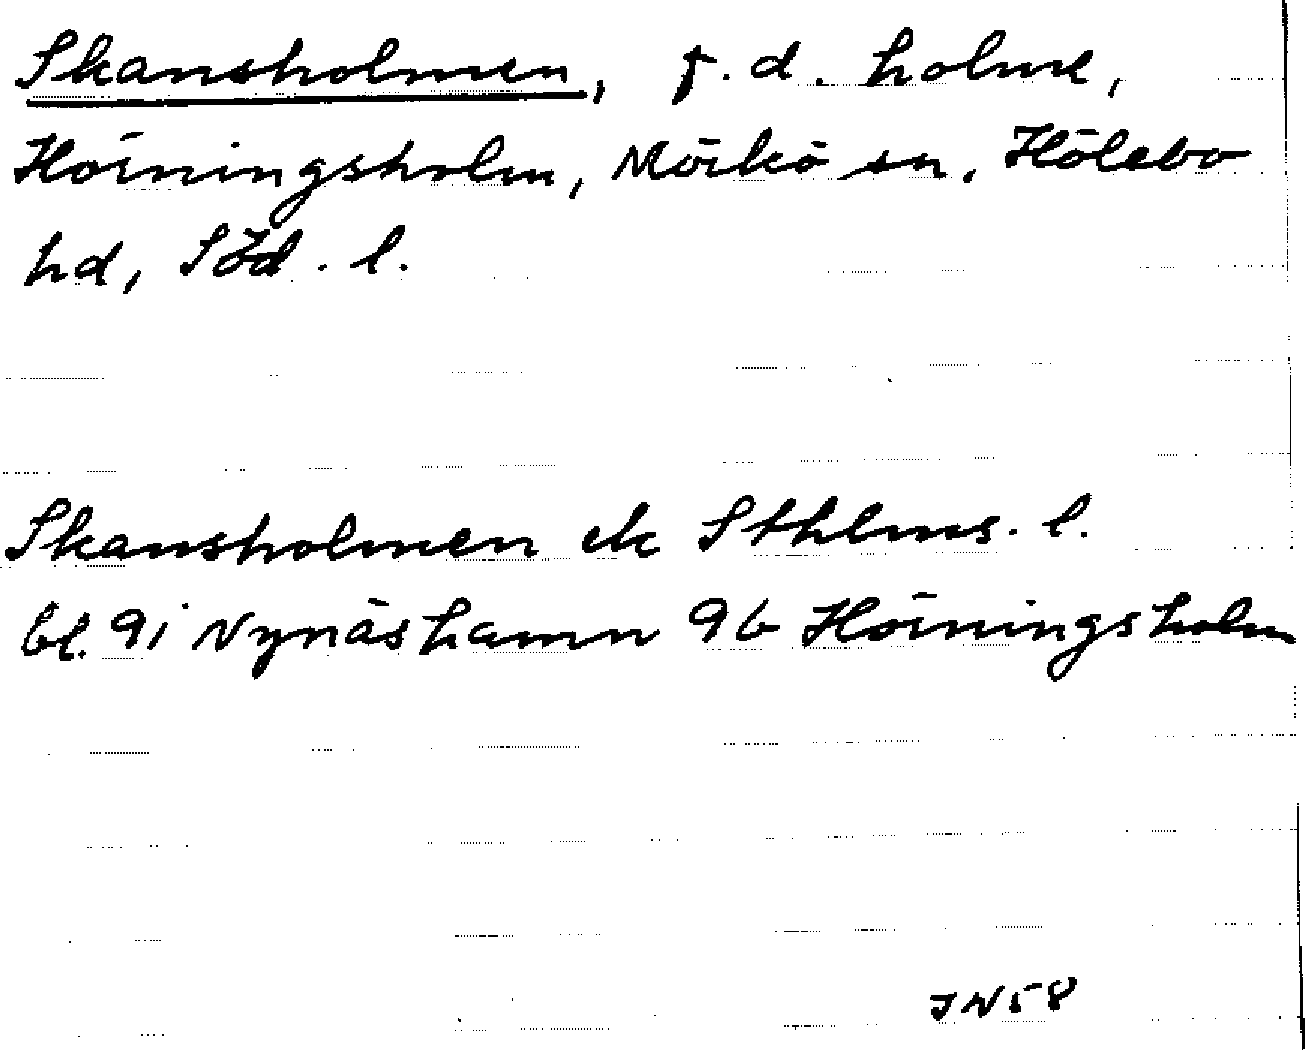 Skansholmen, f.d. holme,
Hörningsholm, Mörkö sn, Hölebo
hd, Söd. l.
Skansholmen ek Sthlms. l.
bl. 91 Nynäshamn 96 Hörningsholm
JN58